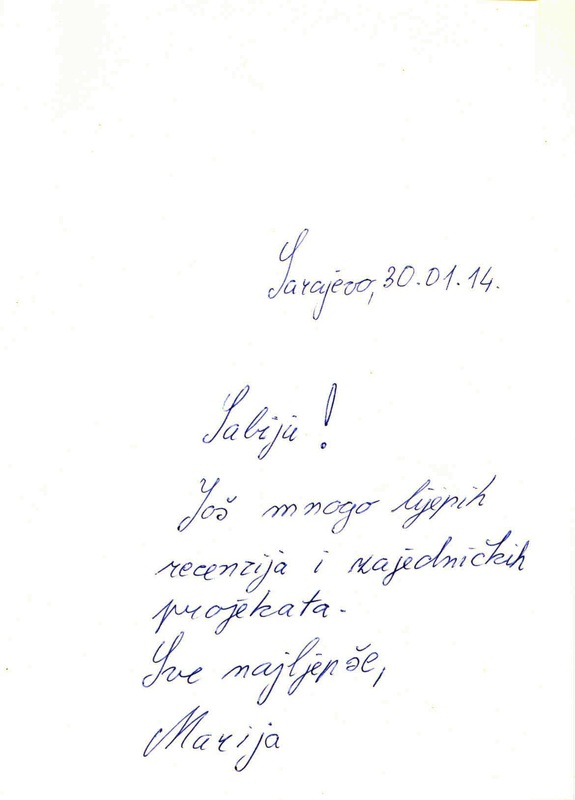 Sarajevo, 30.01.14.
Sabiji!
Još mnogo lijepih
recenzija i zajedničkih
projekata.
Sve najljepše,
Marija